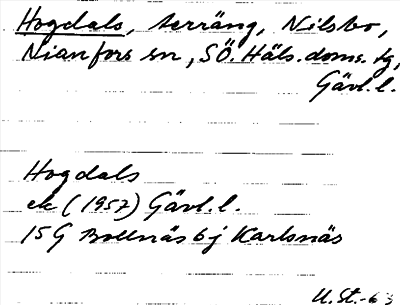 Hogdals, terräng, Nilsbo,
Nianfors sn, SÖ. Häls. doms. tg,
Gävl. l.
Hogdals
ek (1957) Gävl. l.
15G Bollnäs 6j Karlsnäs
U. St.-63